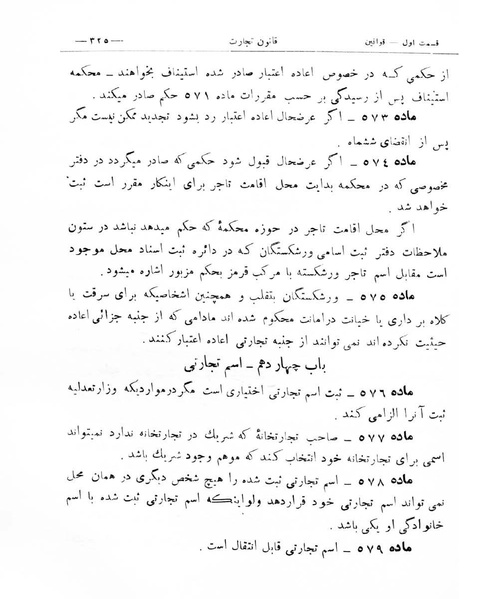 قسمت اول — قوانین قانون تجارت — ۳۲۵ —
از حکمی که در خصوص اعاده اعتبار صادر شده استیناف بخواهند — محکمه
استیناف پس از رسیدگی بر حسب مقررات ماده ۵۷۱ حکم صادر میکند.
ماده ۵۷۳ — اگر عرضحال اعاده اعتبار رد بشود تجدید ممکن نیست مگر
پس از انقضای ششماه .
ماده ۵۷٤ — اگر عرضحال قبول شود حکمی که صادر میگردد در دفتر
مخصوصی که در محکمه بدایت محل اقامت تاجر برای اینکار مقرر است ثبت
خواهد شد .
اگر محل اقامت تاجر در حوزه محکمهٔ که حکم میدهد نباشد در ستون
ملاحظات دفتر ثبت اسامی ورشکستگان که در دائره ثبت اسناد محل موجود
است مقابل اسم تاجر ورشکسته با مرکب قرمز بحکم مزبور اشاره میشود .
ماده ۵۷۵ — ورشکستگان بتقلب و همچنین اشخاصیکه برای سرقت یا
کلاه برداری یا خیانت درامانت محکوم شده اند مادامی که از جنبه جزائی اعاده
حیثیت نکرده اند نمی توانند از جنبه تجارتی اعاده اعتبار کنند .
باب چهاردهم — اسم تجارتی
ماده ۵۷۶ — ثبت اسم تجارتی اختیاری است مگر درمواردیکه وزارتعدلیه
ثبت آنرا الزامی کند .
ماده ۵۷۷ — صاحب تجارتخانهٔ که شریک در تجارتخانه ندارد نمیتواند
اسمی برای تجارتخانه خود انتخاب کند که موهم وجود شریک باشد .
ماده ۵۷۸ — اسم تجارتی ثبت شده را هیچ شخص دیگری در همان محل
نمی تواند اسم تجارتی خود قراردهد ولواینکه اسم تجارتی ثبت شده با اسم
خانوادگی او یکی باشد .
ماده ۵۷۹ — اسم تجارتی قابل انتقال است .